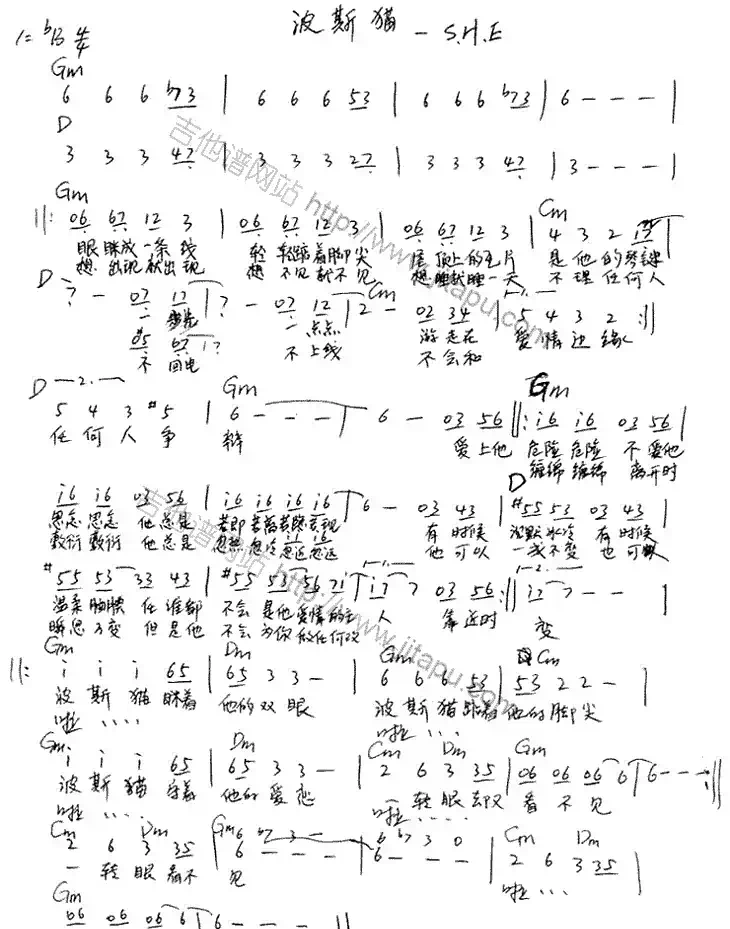 波斯猫 - S.H.E
1=ᵇB 4/4
Gm
6 6 6 b73 | 6 6 6 53 | 6 6 6 b73 | 6 - - - |
D
3 3 3 47 | 3 3 3 27 | 3 3 3 47 | 3 - - - |
Gm Cm
||: 06 67 12 3 | 06 67 12 3 | 06 67 12 3 | 4 3 2
眼眯成一条线 轻轻踮着脚尖 尾 顶上的毛片 是他的
想出现就出现 想不见就不见 想睡就睡一天 不理任何人
D Cm
- 07 12 | - 07 12 | 2 - 02 34 | 5 4 3 2 :||
一 一点点 游走在 爱情边缘
不 回电 不上线 不会和
D Gm Gm
5 4 3 #5 | 6 - - - | 6 - 03 56 ||: i6 i6 03 56 |
任何人争 辩 爱上他 危险危险 不爱他
缠绵缠绵 离开时
D
i6 i6 03 56 | i6 i6 i6 i6 | 6 - 03 43 | #55 53 03 43 |
思念思念 他总是 若即若离若隐若现 有时候 沉默冰冷 有时候
敷衍敷衍 他总是 忽热忽冷忽近忽远 他可以 一成不变 也可以
#55 53 33 43 | #55 53 56 7i | i7 7 03 56 :|| i7 7 - - |
温柔 任谁都 不会是他爱情的主 人 靠近时 变
瞬息万变 但是他 不会为你做任何改
Gm Dm Gm Cm
||: i i i 65 | 65 3 3 - | 6 6 6 53 | 53 2 2 - |
波斯猫眯着 他的双眼 波斯猫踮着他的脚尖
啦.... 啦....
Gm Dm Cm Dm Gm
i i i 65 | 65 3 3 - | 2 6 3 35 | 06 06 06 6 | 6 - - - :||
波斯猫守着 他的爱恋 一转眼却又 看不见
啦.... 啦....
Cm Dm Gm Cm Dm
2 6 3 35 | 6 - - - | 6 - - - | 2 6 3 35 |
6 b7 3 - 6 b7 3 0
一转眼看不 见 啦...
Gm
06 06 06 6 | 6 - - - ||
吉他谱网站 http://www.jitapu.com
吉他谱网站 http://www.jitapu.com